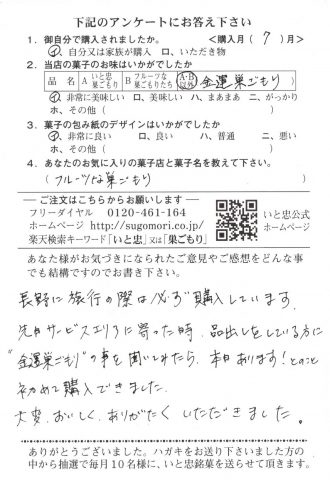 下記のアンケートにお答え下さい
1. 御自分で購入されましたか。 <購入月( 7 )月>
イ、自分又は家族が購入 ロ、いただき物
2. 当店の菓子のお味はいかがでしたか
品 名 A いと忠巣ごもり B フルーツな巣ごもりたち A・B以外(金運巣ごもり)
イ、非常に美味しい ロ、美味しい ハ、まあまあ ニ、がっかり
ホ、その他( )
3. 菓子の包み紙のデザインはいかがでしたか
イ、非常に良い ロ、良い ハ、普通 ニ、悪い
ホ、その他( )
4. あなたのお気に入りの菓子店と菓子名を教えて下さい。
( フルーツな巣ごもり )
ご注文はこちらからお願いします
フリーダイヤル 0120-461-164
ホームページ http://sugomori.co.jp/
楽天検索キーワード「いと忠」又は「巣ごもり」
いと忠公式
ホームページ
あなた様がお気づきになられたご意見やご感想をどんな事
でも結構ですのでお書き下さい。
長野に旅行の際は必ず購入しています。
先日サービスエリアに寄った時、品出しをしている方に
"金運巣ごもり"の事を聞いてみたら、本日あります!とのこと
初めて購入できました。
大変、おいしく、ありがたくいただきました。
ありがとうございました。ハガキをお送り下さいました方の
中から抽選で毎月10名様に、いと忠銘菓を送らせて頂きます。